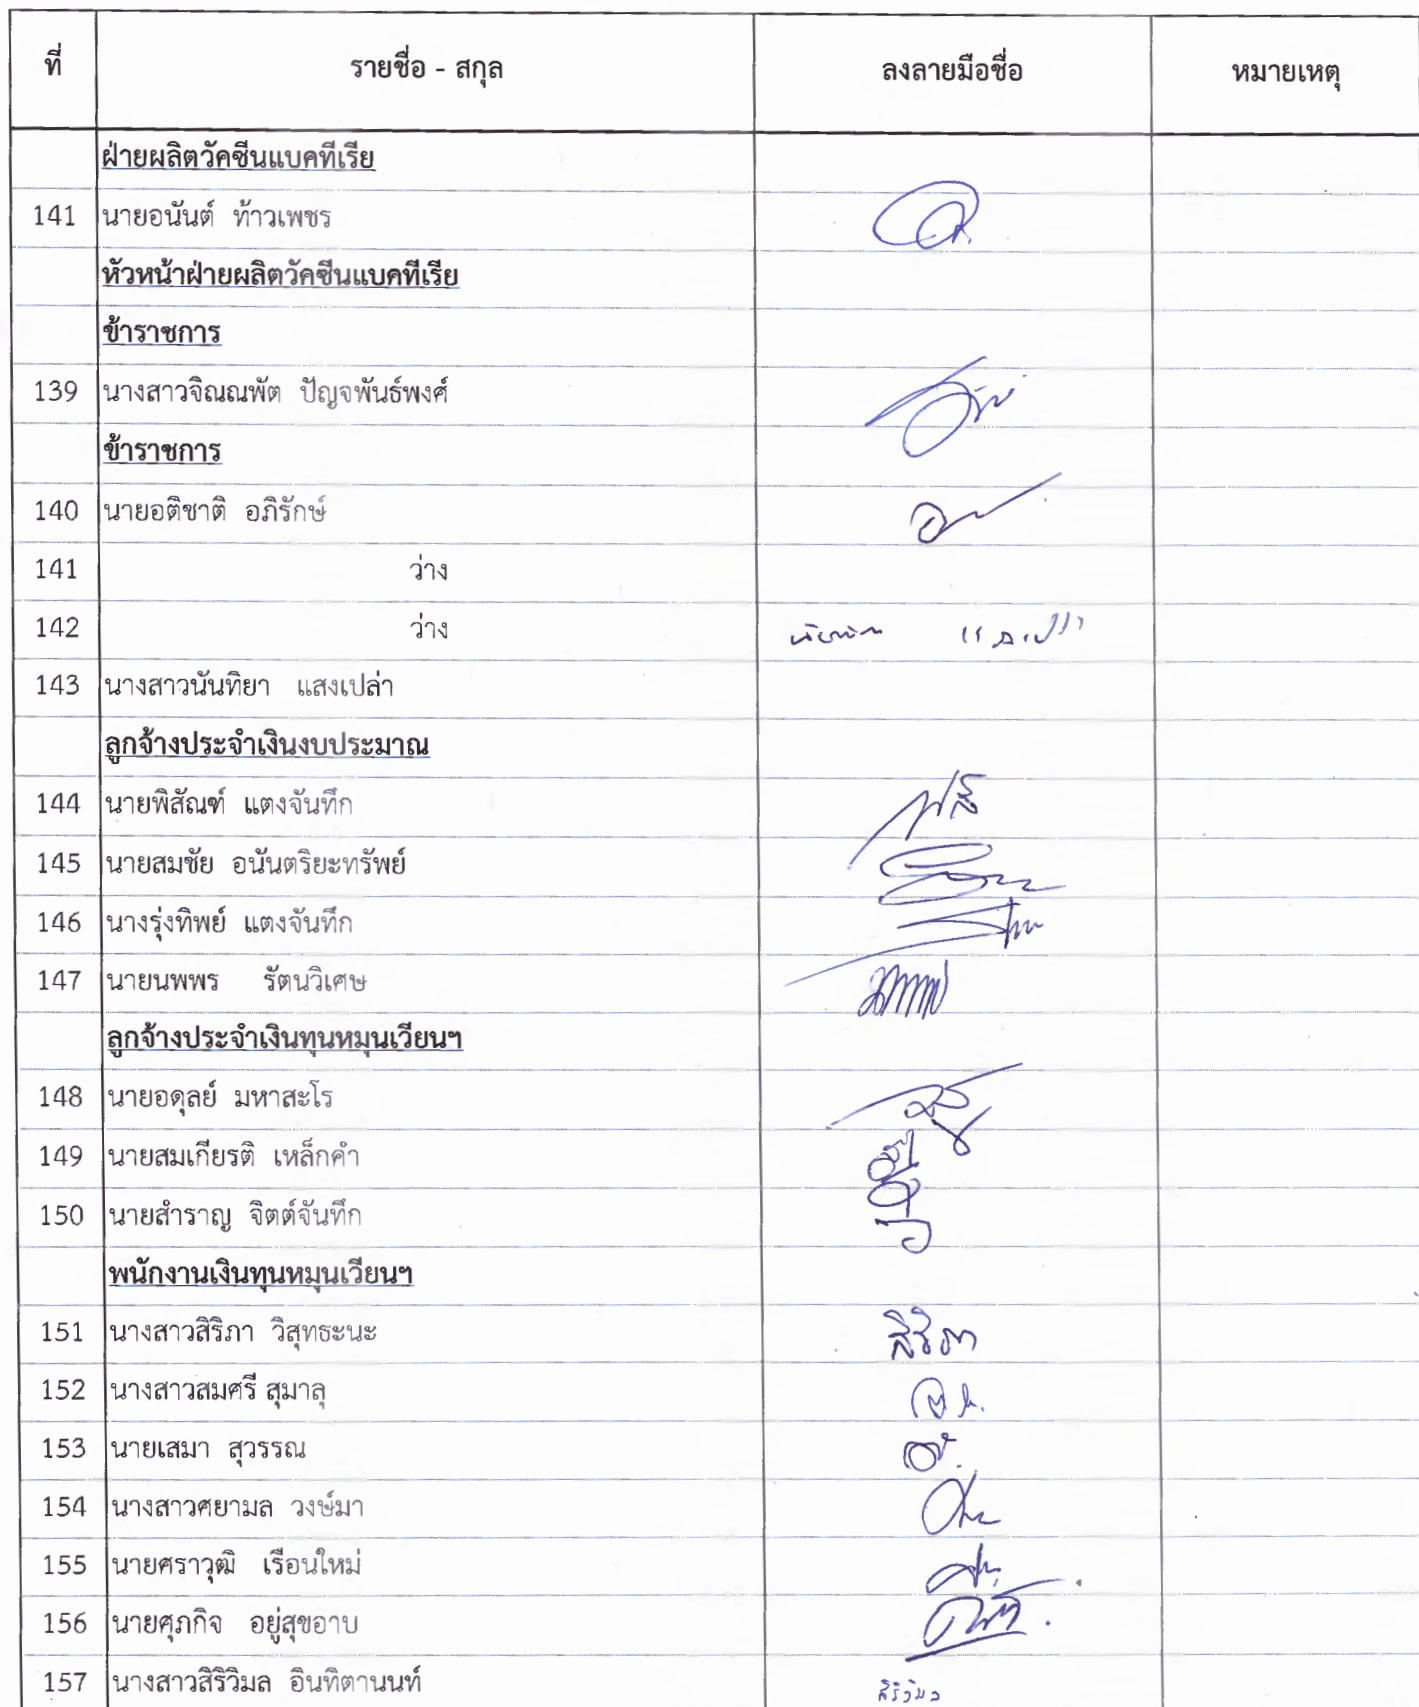 ที่ รายชื่อ - สกุล ลงลายมือชื่อ หมายเหตุ
ฝ่ายผลิตวัคซีนแบคทีเรีย
141 นายอนันต์ ท้าวเพชร
หัวหน้าฝ่ายผลิตวัคซีนแบคทีเรีย
ข้าราชการ
139 นางสาวจิณณพัต ปัญจพันธ์พงศ์
ข้าราชการ
140 นายอติชาติ อภิรักษ์
141 ว่าง
142 ว่าง
143 นางสาวนันทิยา แสงเปล่า
ลูกจ้างประจำเงินงบประมาณ
144 นายพิสัณฑ์ แตงจันทึก
145 นายสมชัย อนันตริยะทรัพย์
146 นางรุ่งทิพย์ แตงจันทึก
147 นายนพพร รัตนวิเศษ
ลูกจ้างประจำเงินทุนหมุนเวียนฯ
148 นายอดุลย์ มหาสะโร
149 นายสมเกียรติ เหล็กคำ
150 นายสำราญ จิตต์จันทึก
พนักงานเงินทุนหมุนเวียนฯ
151 นางสาวสิริภา วิสุทธะนะ สิริภา
152 นางสาวสมศรี สุมาลุ
153 นายเสมา สุวรรณ
154 นางสาวศยามล วงษ์มา
155 นายศราวุฒิ เรือนใหม่
156 นายศุภกิจ อยู่สุขอาบ
157 นางสาวสิริวิมล อินทิตานนท์ สิริวิมล